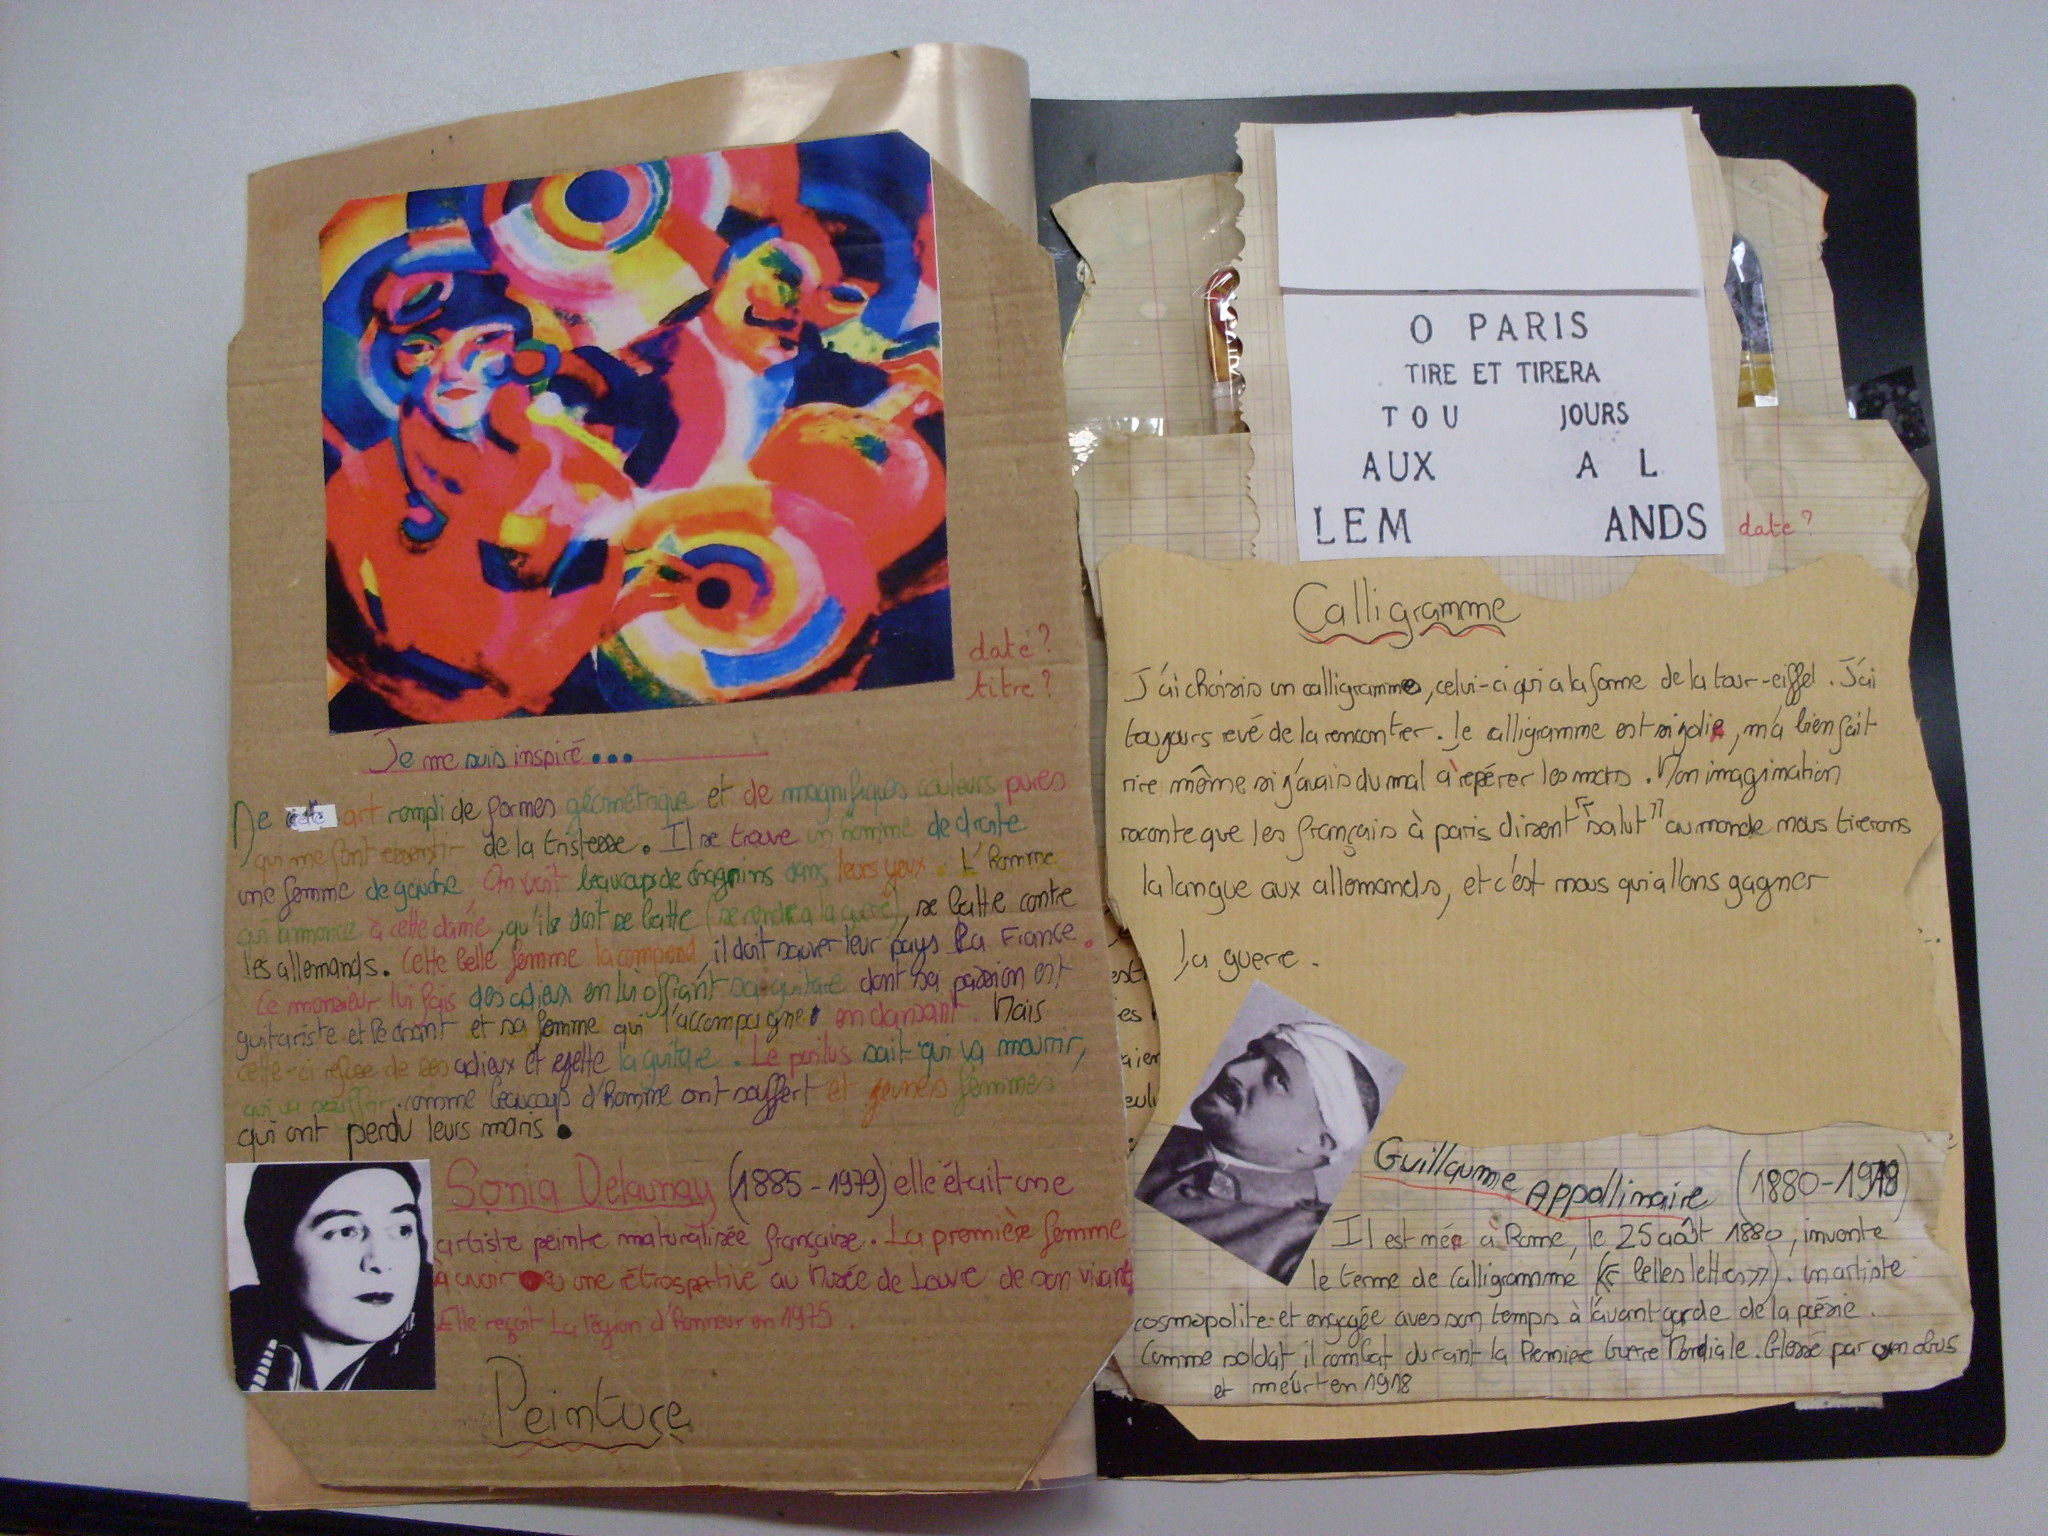 date?
titre?
Je me suis inspiré...
De cette art rempli de formes géométrique et de magnifiques couleurs pures
qui me font ressentir de la tristesse. Il se trouve un homme de droite
une femme de gauche, On voit beaucoups de chagrins dans leurs yeux. L'homme
qui annonce à cette dame, qu'ils doit se batte (se rendre a la guerre), se batte contre
les allemands. Cette belle femme la comprend, il doit sauver leur pays La France.
Ce monsieur lui fais des adieux en lui offrant sa guitare dont sa passion est
guitariste et le chant et sa femme qui l'accompagne en dansant. Mais
celle-ci refuse de ses adieux et rejette la guitare. Le poilus sait qui va mourrir,
qui va souffrir, comme beaucoups d'homme ont souffert et jeunes femmes
qui ont perdu leurs maris.
Sonia Delaunay (1885-1979) elle était une
artiste peintre naturalisée française. La première femme
à avoir eu une rétrospective au Musée de Louvre de son vivant
Elle reçoit La légion d'honneur en 1975.
Peinture
O PARIS
TIRE ET TIRERA
TOU JOURS
AUX A L
LEM ANDS
date?
Calligramme
J'ai choisis un calligramme, celui-ci qui a la forme de la tour-eiffel. J'ai
toujours revé de la rencontrer. Le calligramme est si jolie, m'a bien fait
rire même si j'avais du mal a repérer les mots. Mon imagination
raconte que les français à paris disent "salut" au monde nous tirerons
la langue aux allemands, et c'est nous qui allons gagner
la guerre.
Guillaume Appollinaire (1880-1918)
Il est née à Rome, le 25 août 1880, invente
le terme de Calligramme (<< belles lettres >>). un artiste
cosmopolite et engagée aves son temps à l'avant garde de la poésie.
Comme soldat, il combat durant la Premiere Guerre Mondiale. Blessé par un obus
et meurt en 1918